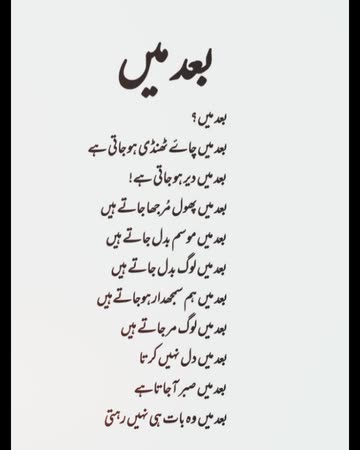 بعد میں
بعد میں؟
بعد میں چائے ٹھنڈی ہو جاتی ہے
بعد میں دیر ہو جاتی ہے!
بعد میں پھول مُرجھا جاتے ہیں
بعد میں موسم بدل جاتے ہیں
بعد میں لوگ بدل جاتے ہیں
بعد میں ہم سمجھدار ہو جاتے ہیں
بعد میں لوگ مر جاتے ہیں
بعد میں دل نہیں کرتا
بعد میں صبر آ جاتا ہے
بعد میں وہ بات ہی نہیں رہتی